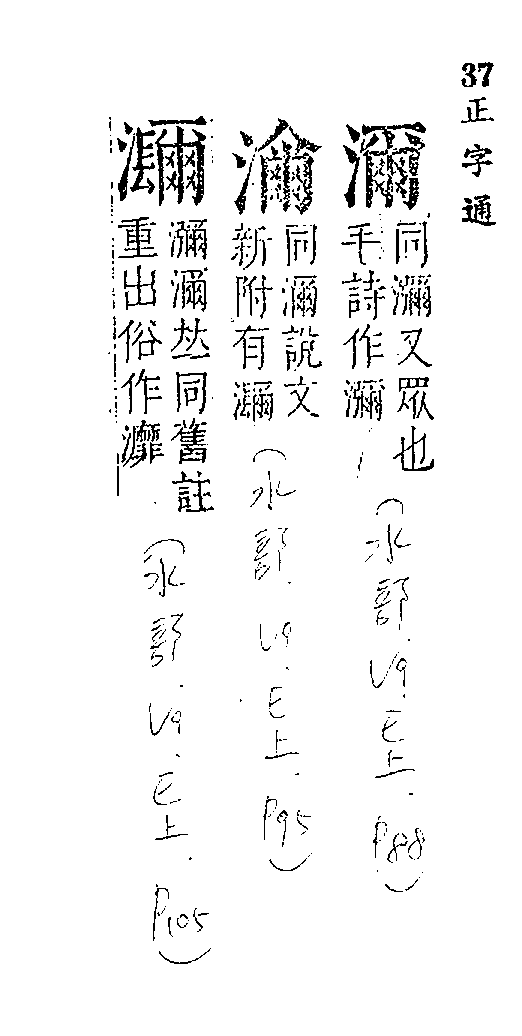 37正字通
濔
同瀰又眾也
毛詩作瀰
(水部.V9.巳上.P88)
同濔說文
新附有瀰
(水部.V9.巳上.P95)
瀰
瀰濔𠀤同舊註
重出俗作灖
(水部.V9.巳上.P105)